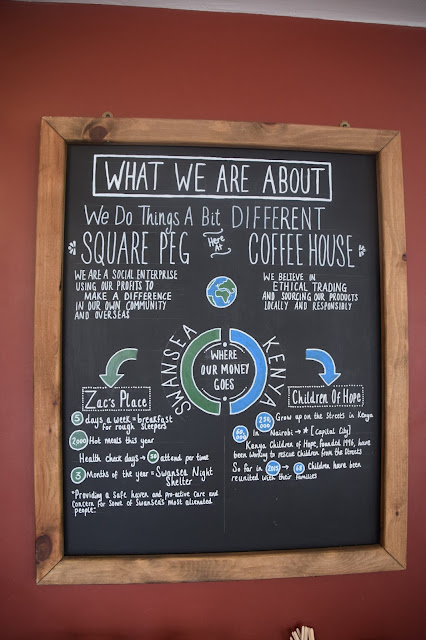 WHAT WE ARE ABOUT
We Do Things A Bit DIFFERENT
Here At
"SQUARE PEG COFFEE HOUSE"
WE ARE A SOCIAL ENTERPRISE
USING OUR PROFITS TO
MAKE A DIFFERENCE
IN OUR OWN COMMUNITY
AND OVERSEAS
WE BELIEVE IN
ETHICAL TRADING
AND SOURCING OUR PRODUCTS
LOCALLY AND RESPONSIBLY
SWANSEA
WHERE
OUR MONEY
GOES
KENYA
Zac's Place
5 days a week = breakfast
for rough sleepers
2000 Hot meals this year
Health check days → 30 attend per time
3 Months of the year = Swansea Night
Shelter
"Providing a safe haven and pro-active care and
concern for some of Swansea's most alienated
people"
Children Of Hope
250,000 Grow up on the Streets in Kenya
60,000 In Nairobi → * [Capital City]
Kenya Children of Hope, founded 1996, have
been working to rescue children from the Streets
So far in 2015 → 68 Children have been
reunited with their families